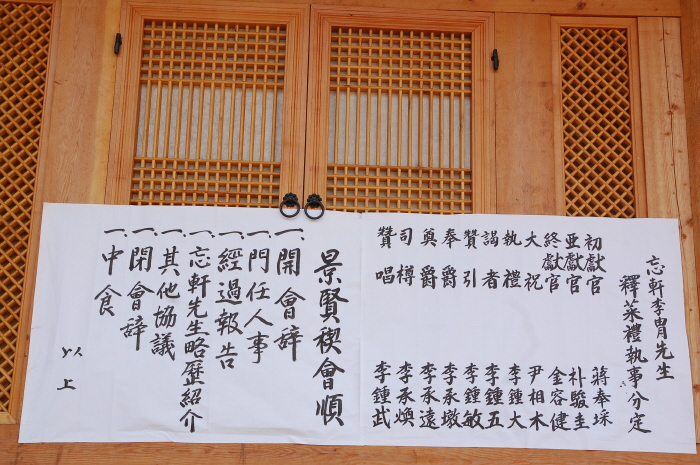 忘軒李冑先生
釋菜禮執事分定
初獻官 蔣奉埰
亞獻官 朴駿圭
終獻官 金容健
大祝 尹相木
執禮 李鍾大
謁者 李鍾五
贊引 李鍾敏
奉爵 李永墩
奠爵 李承遠
司樽 李承煥
贊唱 李鍾武
景賢稧會順
一. 開會辞
一. 門任人事
一. 經過報告
一. 忘軒先生略歷紹介
一. 其他協議
一. 閉會辞
一. 中食
以上